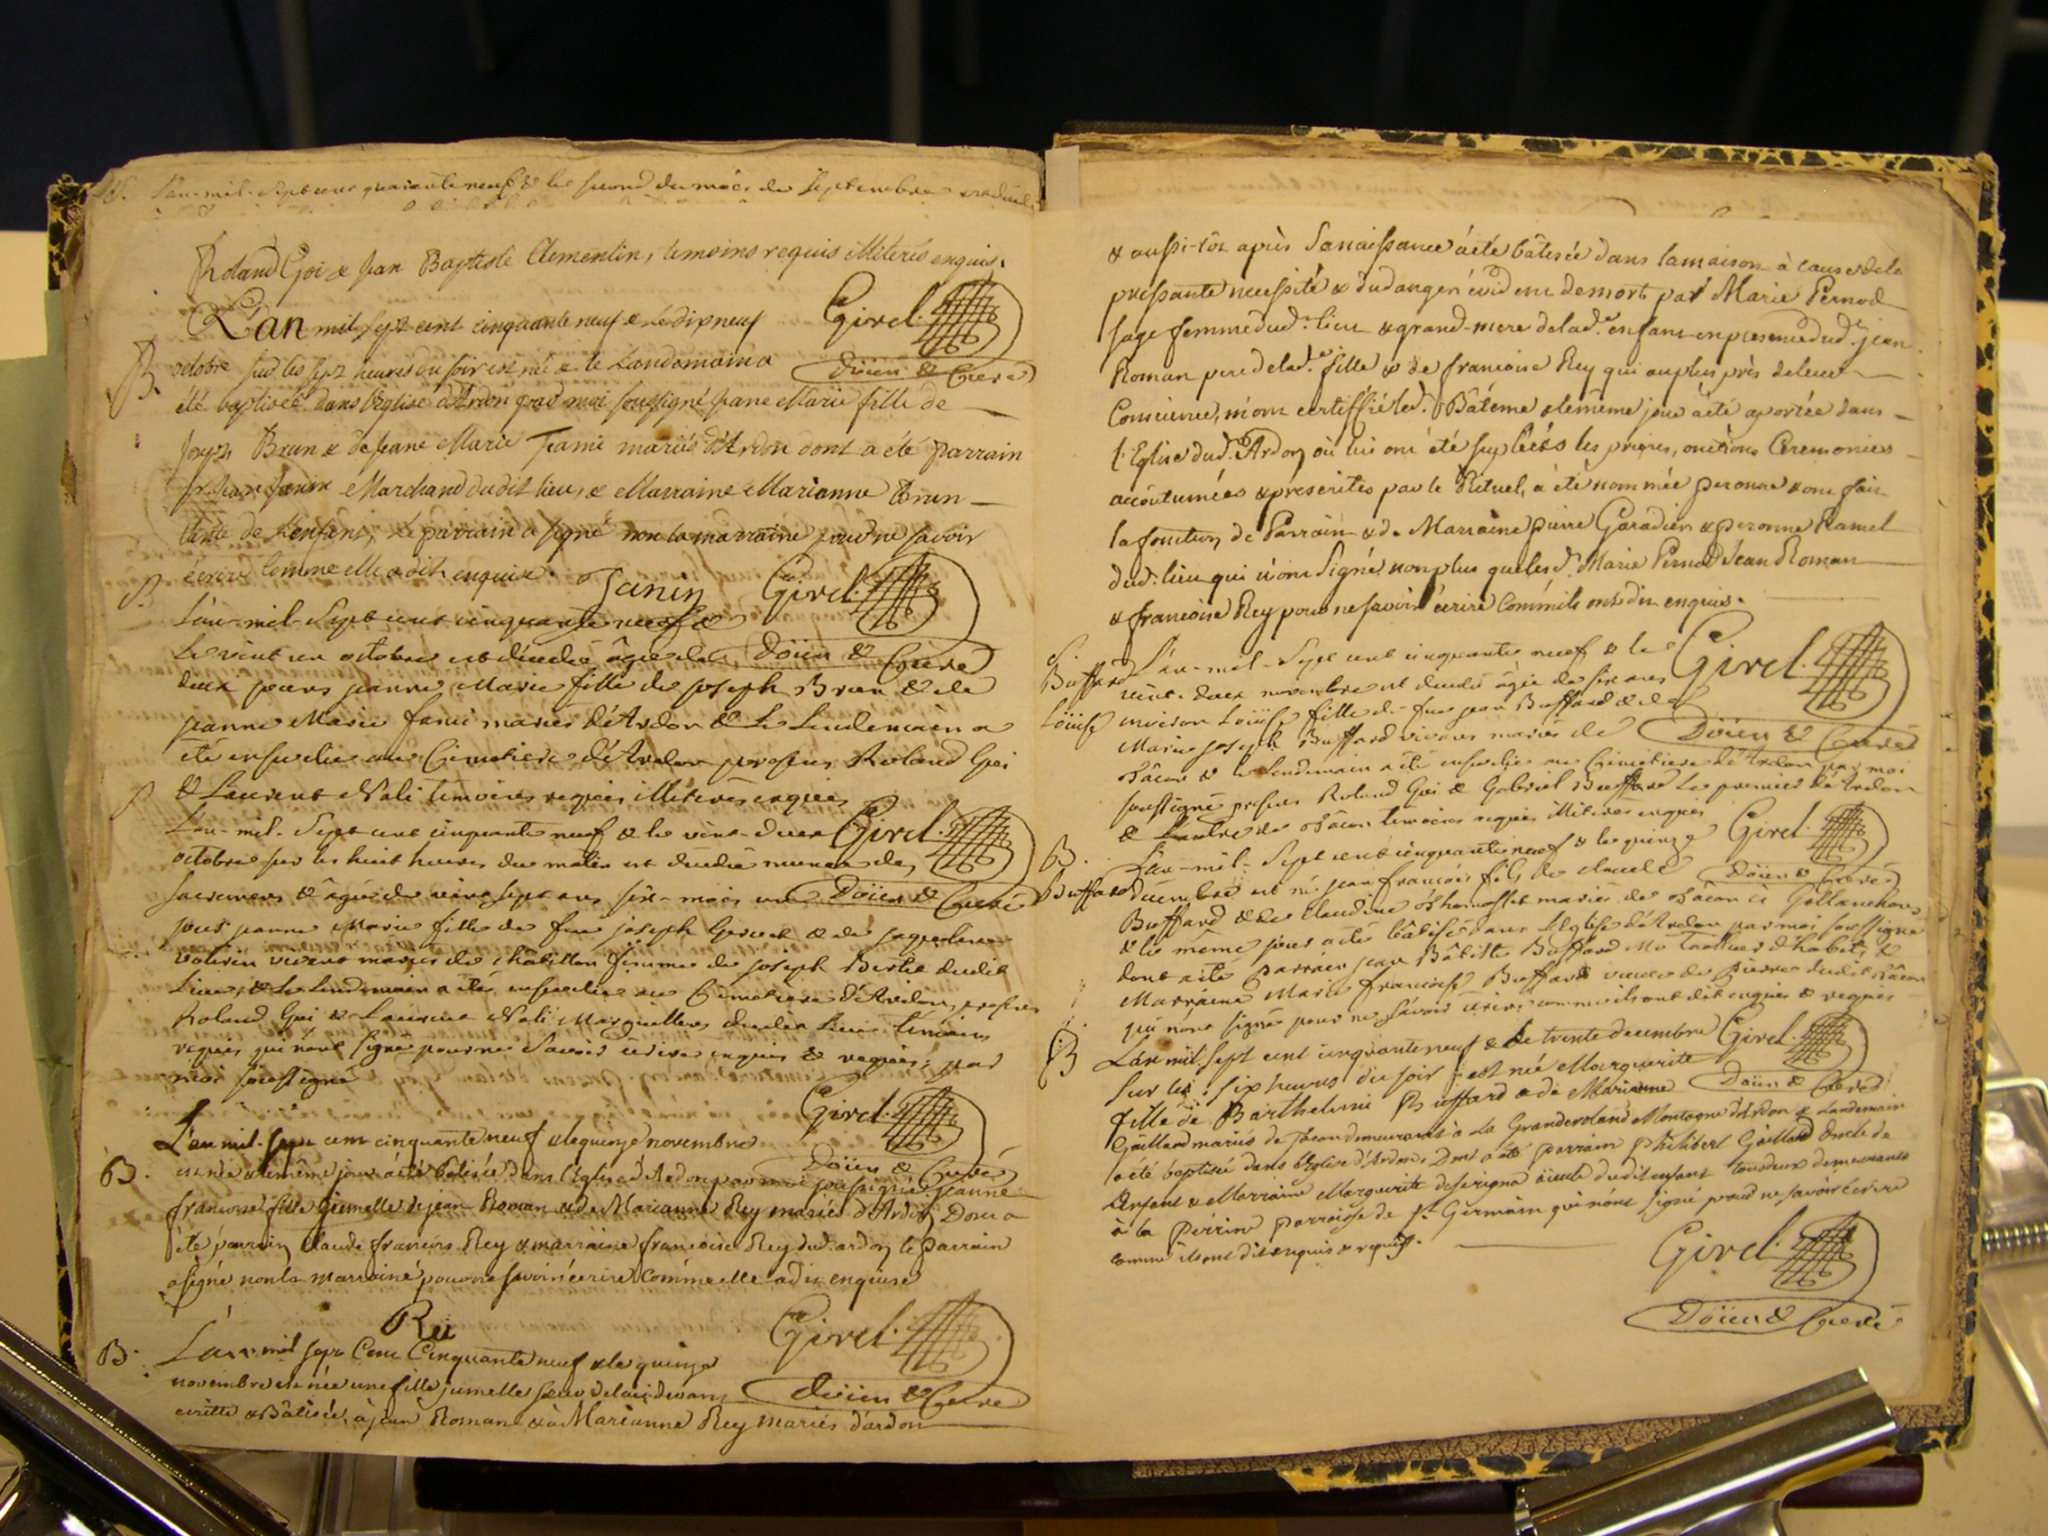 L'an mil sept cent quarante neuf & le second du mois de Septembre
Roland Goi & Jean Baptiste Clementin, temoins requis illiterés enquis.
L'an mil sept cent cinquante neuf & le dix neuf
Girel
B. octobre sur les sept heures du soir est né & le Landemain a
Doïen & Curé
été baptisée dans l'église d'Ardon par moi soussigné jeane Marie fille de
Joseph Brun & de Jeane Marie Fami mariés d'Ardon dont a été parrain
Janin Marchand dudit lieu, & Marraine Marianne Brun
tante de L'enfant, Le parrain a signé non la marraine pour ne savoir
écrire comme elle a dit enquise. Janin Girel
L'an-mil-Sept cent cinquante neuf &
Le vint un octobre est décédée âgée de Doïen & Curé
deux jours jeanne Marie fille de Joseph Brun & de
jeanne Marie fami mariés d'Ardon & le Lendemain a
été ensevelie au Cimetiere d'Ardon presens Roland Goi
& Laurent Nali temoins requis illiterés enquis
L'an-mil-Sept cent cinquante neuf & le vint-deux Girel
octobre sur les huit heures du matin est décédée munie des
sacremens & âgée de vint sept ans six-mois un Doïen & Curé
jour jeanne Marie fille de feu joseph & de jaqueline
vivans mariés de châtillon femme de joseph Bertet dudit
Lieu, & le Lendemain a été ensevelie au Cimetiere d'Ardon, presens
Roland Goi & Laurent Nali Marguilliers dudit Lieu témoins
requis qui n'ont signé pour ne savoir écrire enquis & requis, par
moi soussigné
Girel
L'an mil-sept cent cinquante neuf & le quinze novembre
Doïen & Curé
B. est née & le même jour a été batisée dans l'Eglise d'Ardon par moi soussigné jeanne
francoise fille Gumelle de jean Roman & de Marianne Rey mariés d'Ardon Dont a
été parrain Claude francois Rey & marraine francoise Rey dud. ardon le parrain
a signé non la marraine pour ne savoir écrire comme elle a dit enquise
Rei Girel
B. L'an mil sept Cent Cinquante neuf & le quinze
novembre est née une fille jumelle soeur de la ci devant Doïen & Curé
écritte & Bâtisée, à jean Roman & à Marianne Rey mariés d'ardon
& aussi-tôt après sa naissance a été bâtisée dans la maison à cause de la
pressante necessité & du danger évident de mort par Marie Pernod
sage femme dud. lieu & grand-mere de lad. enfant en presence dud. jean
Roman pere de lad. fille & de francoise Rey qui au plus près de leur
Conscience, m'ont certiffié led. Bâteme & le même jour a été aportée dans
l'Eglise dud. Ardon où lui ont été suplées les prieres, onctions Ceremonies
accoutumées & prescrites par le Rituel, a été nommée peronne & ont fait
la fonction de Parrain & de Marraine pierre Garadier & peronne Ramel
dud. lieu qui n'ont Signé non plus que lesd. Marie Pernod Jean Roman
& francoise Rey pour ne savoir écrire comm'ils ont dit enquis.
S. L'an-mil-Sept cent cinquante neuf & le Girel
Buffard vint-deux novembre est décédée âgée de six ans
Loüise environ Loüise fille de feu jean Buffard & de
Marie joseph Buffard vivans mariés de Doïen & Curé
Tâcon & le Lendemain a été ensevelie au Cimetiere d'Ardon par moi
soussigné presens Roland Goi & Gabriel Buffard Le premier d'Ardon
& Lautre de Tâcon temoins requis illiterés enquis
B. L'an-mil-Sept cent cinquante neuf & le quinze Girel
Buffard décembre est né jean francois fils de claude Doïen & Curé
Buffard & de Claudine mariés de Tâcon
& le même jour a été bâtisé dans l'Eglise d'Ardon par moi soussigné
dont a été Parrain jean Bâtiste Buffard &
Marraine Marie francoise Buffard veuve de Pierre dudit Tâcon
qui n'ont signé pour ne sávoir écrire comme ils ont dit enquis & requis
B L'an mil sept cent cinquante neuf & le trente decembre Girel
sur les six heures du soir est née Marguerite
fille de Barthelemi Buffard & de Marianne Doïen & Curé
Gaillard mariés de Tacon demeurants à La Granderoland Montagne d'Ardon & Landemain
a été baptisée dans l'Eglise d'Ardon. Dont a été parrain philibert Gaillard Oncle de
L'enfant & Marraine Marguerite aieule dudit enfant tous deux demeurants
à la Perrine parroisse de St. Germain qui n'ont signé pour ne savoir écrire
comme ils ont dit enquis & requis.
Girel
Doïen & Curé